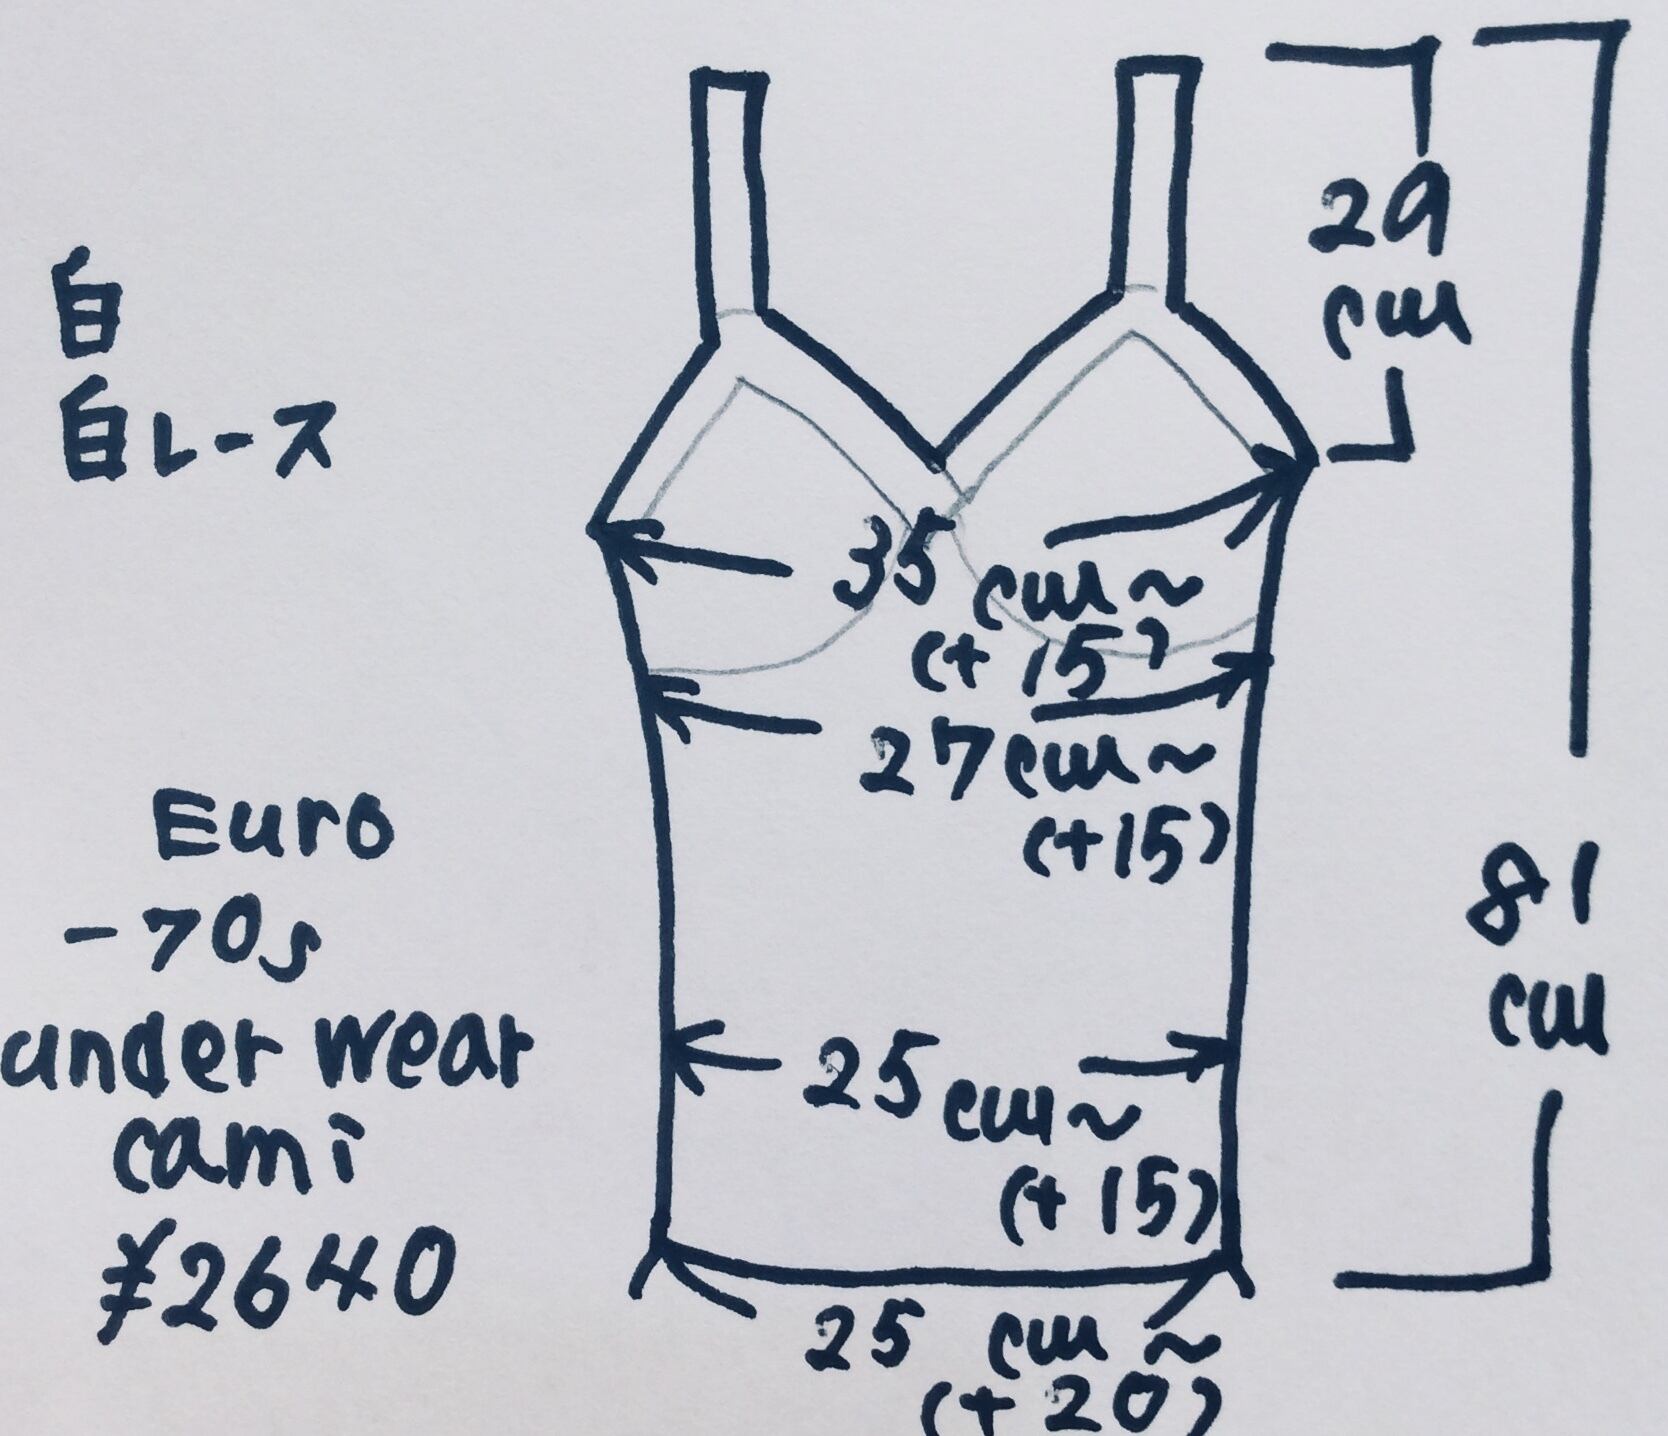 白
白レース
Euro
-70s
under wear
cami
¥2640
29
cm
35 cm~
(+15)
27cm~
(+15)
81
cm
25cm~
(+15)
25 cm~
(+20)